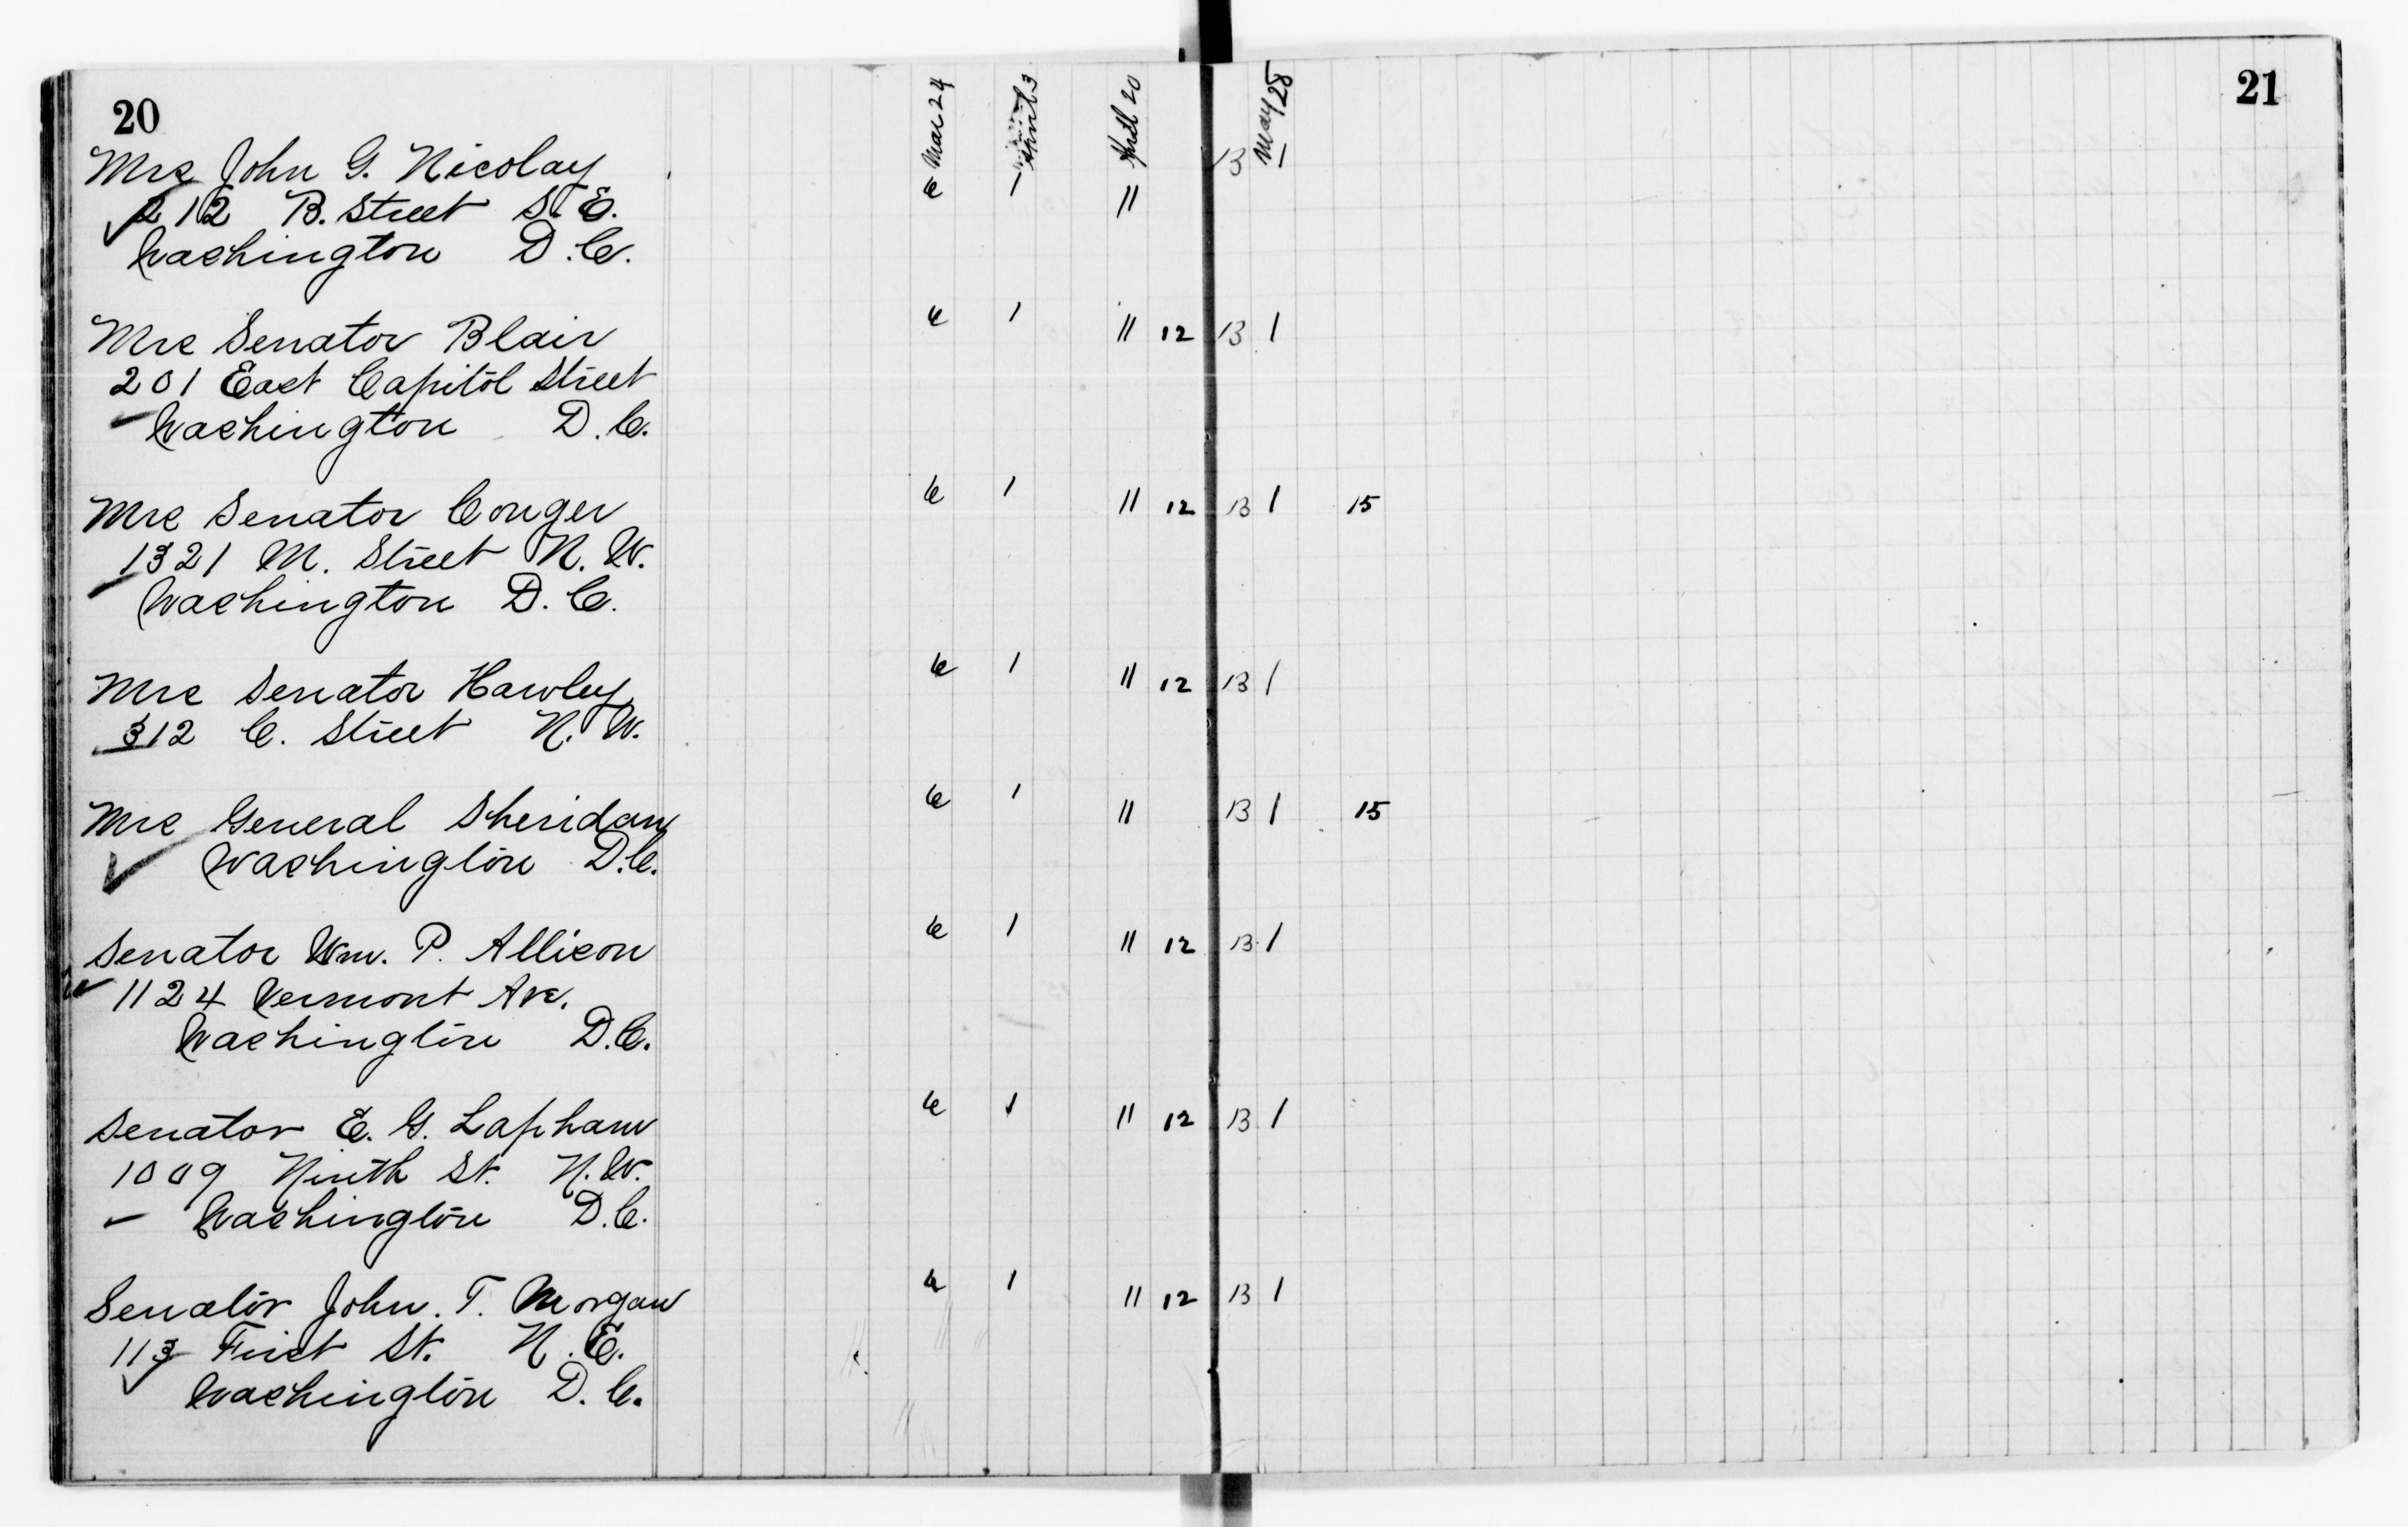 20
21
Mar 24
April 3
April 20
May 28
Mrs John G. Nicolay
6 — 11 13 1
212 B. Street S. E.
Washington D.C.
Mrs Senator Blair
6 1 11 12 13 1
201 East Capitol Street
Washington D.C.
Mrs Senator Conger
6 1 11 12 13 1 15
1321 M. Street N. W.
Washington D.C.
Mrs Senator Hawley
6 1 11 12 13 1
312 C. Street N. W.
Mrs General Sheridan
6 1 11 13 1 15
Washington D.C.
Senator Wm. P. Allison
6 1 11 12 13 1
1124 Vermont Ave.
Washington D.C.
Senator E. G. Lapham
6 1 11 12 13 1
1009 Ninth St. N. W.
Washington D.C.
Senator John. T. Morgan
6 1 11 12 13 1
113 First St. N. E.
Washington D.C.